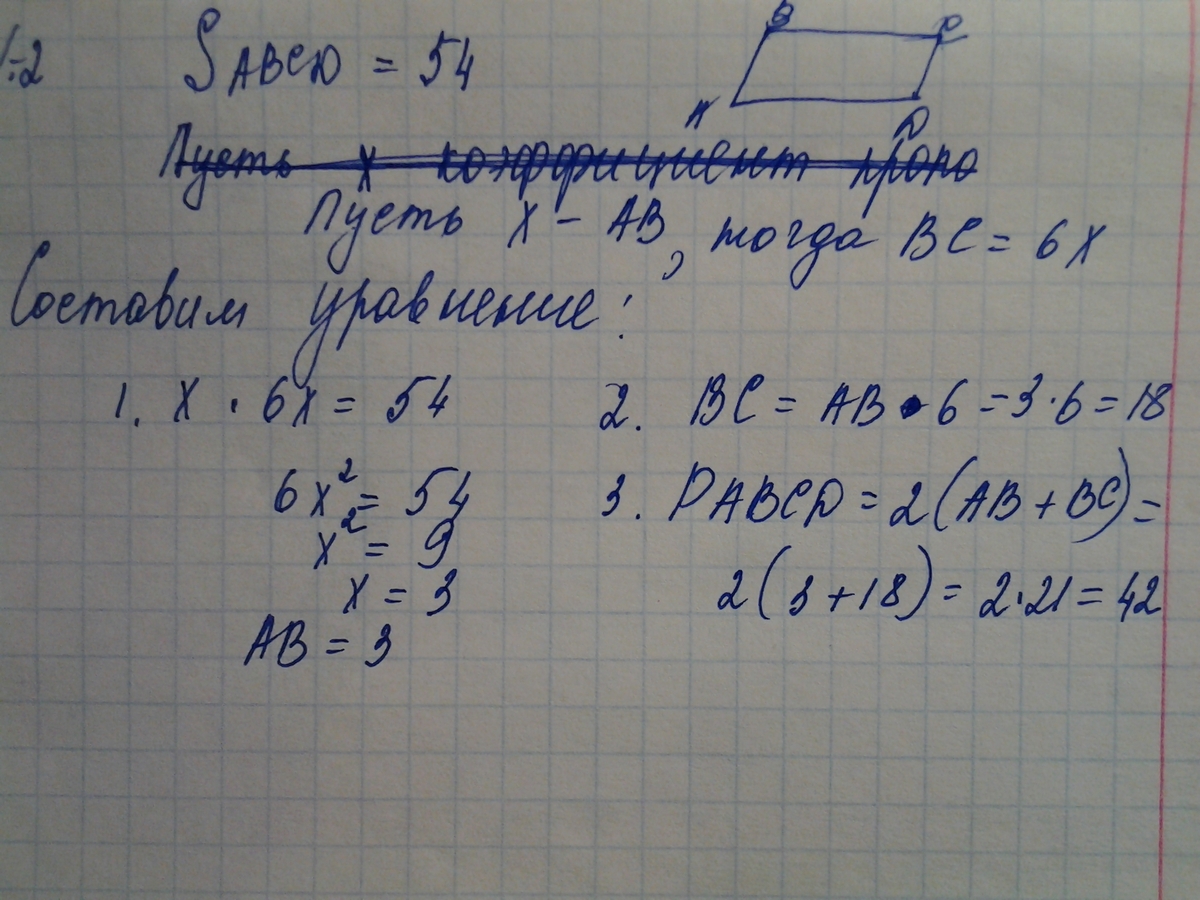 ÷2 SABCD = 54
B C
A D
Пусть x коэффициент пропо
Пусть x – AB, тогда BC = 6x
Составим уравнение:
1. x · 6x = 54
6x² = 54
x² = 9
x = 3
AB = 3
2. BC = AB · 6 = 3 · 6 = 18
3. PABCD = 2(AB + BC) =
2(3 + 18) = 2 · 21 = 42